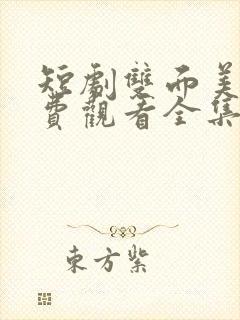 短劇雙面美
費觀看全集
東方紫